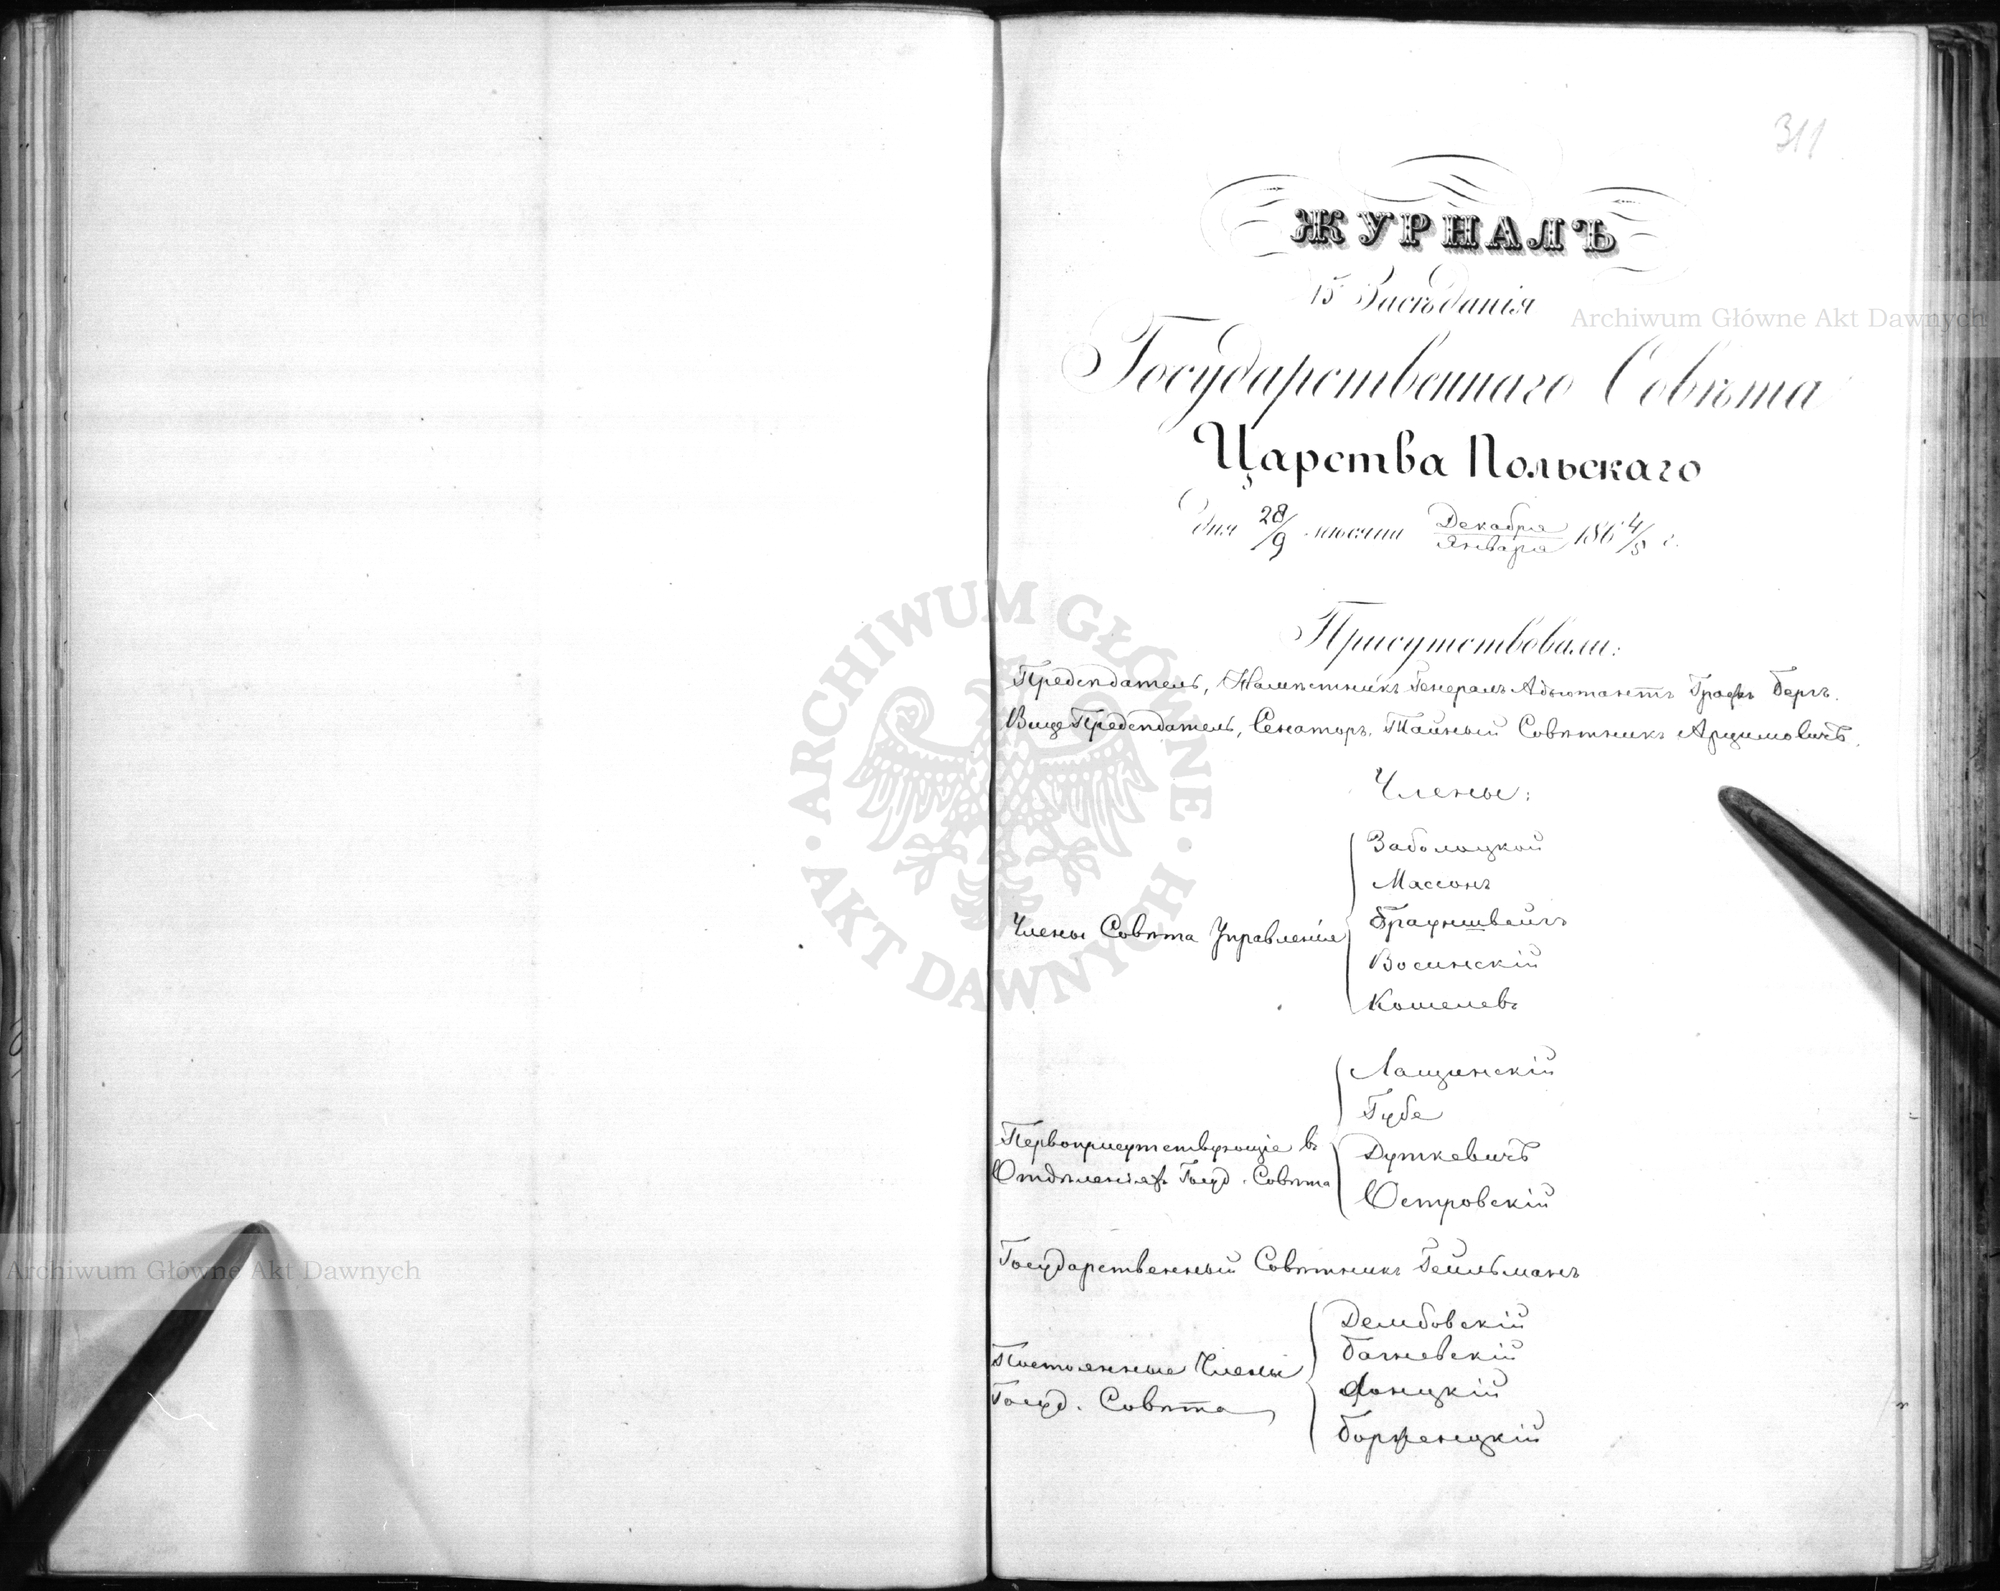 311
ЖУРНАЛЪ
15 Засѣданія
Государственнаго Совѣта
Царства Польскаго
дня 28/9 мѣсяца Декабря/Января 1864/5 г.
Присутствовали:
Предсѣдатель, Намѣстникъ Генералъ Адъютантъ Графъ Бергъ.
Вице Предсѣдатель, Сенаторъ, Тайный Совѣтникъ Арцимовичъ.
Члены:
Члены Совѣта Управленія
Заболоцкой
Массонъ
Брауншвейгъ
Восинскій
Кошелевъ
Лащинскій
Губе
Первоприсутствующіе въ
Отдѣленіяхъ Госуд. Совѣта
Дуткевичъ
Островскій
Государственный Совѣтникъ Гейльманъ
Постоянные Члены
Госуд. Совѣта
Дембовскій
Багневскій
Борженцкій
Archiwum Główne Akt Dawnych
Archiwum Główne Akt Dawnych
ARCHIWUM GŁÓWNE
AKT DAWNYCH